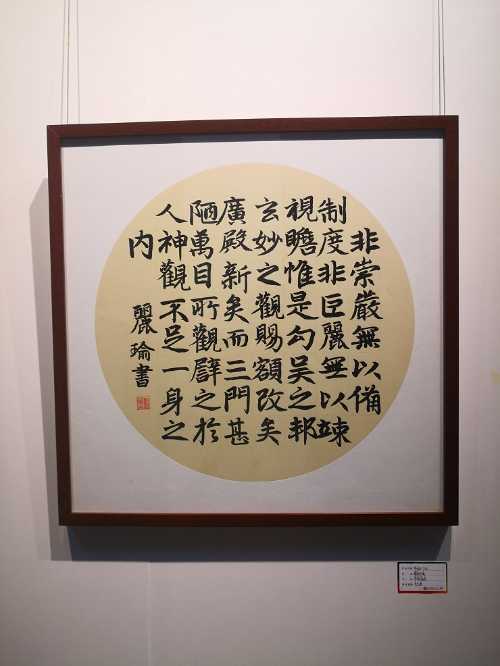 非崇嚴無以備
制度非巨麗無以竦
視瞻惟是勾吳之邦
玄妙之觀賜額改矣
廣殿新矣而三門甚
陋萬目所觀譬之於
人神觀不足一身之
内
麗瑜書